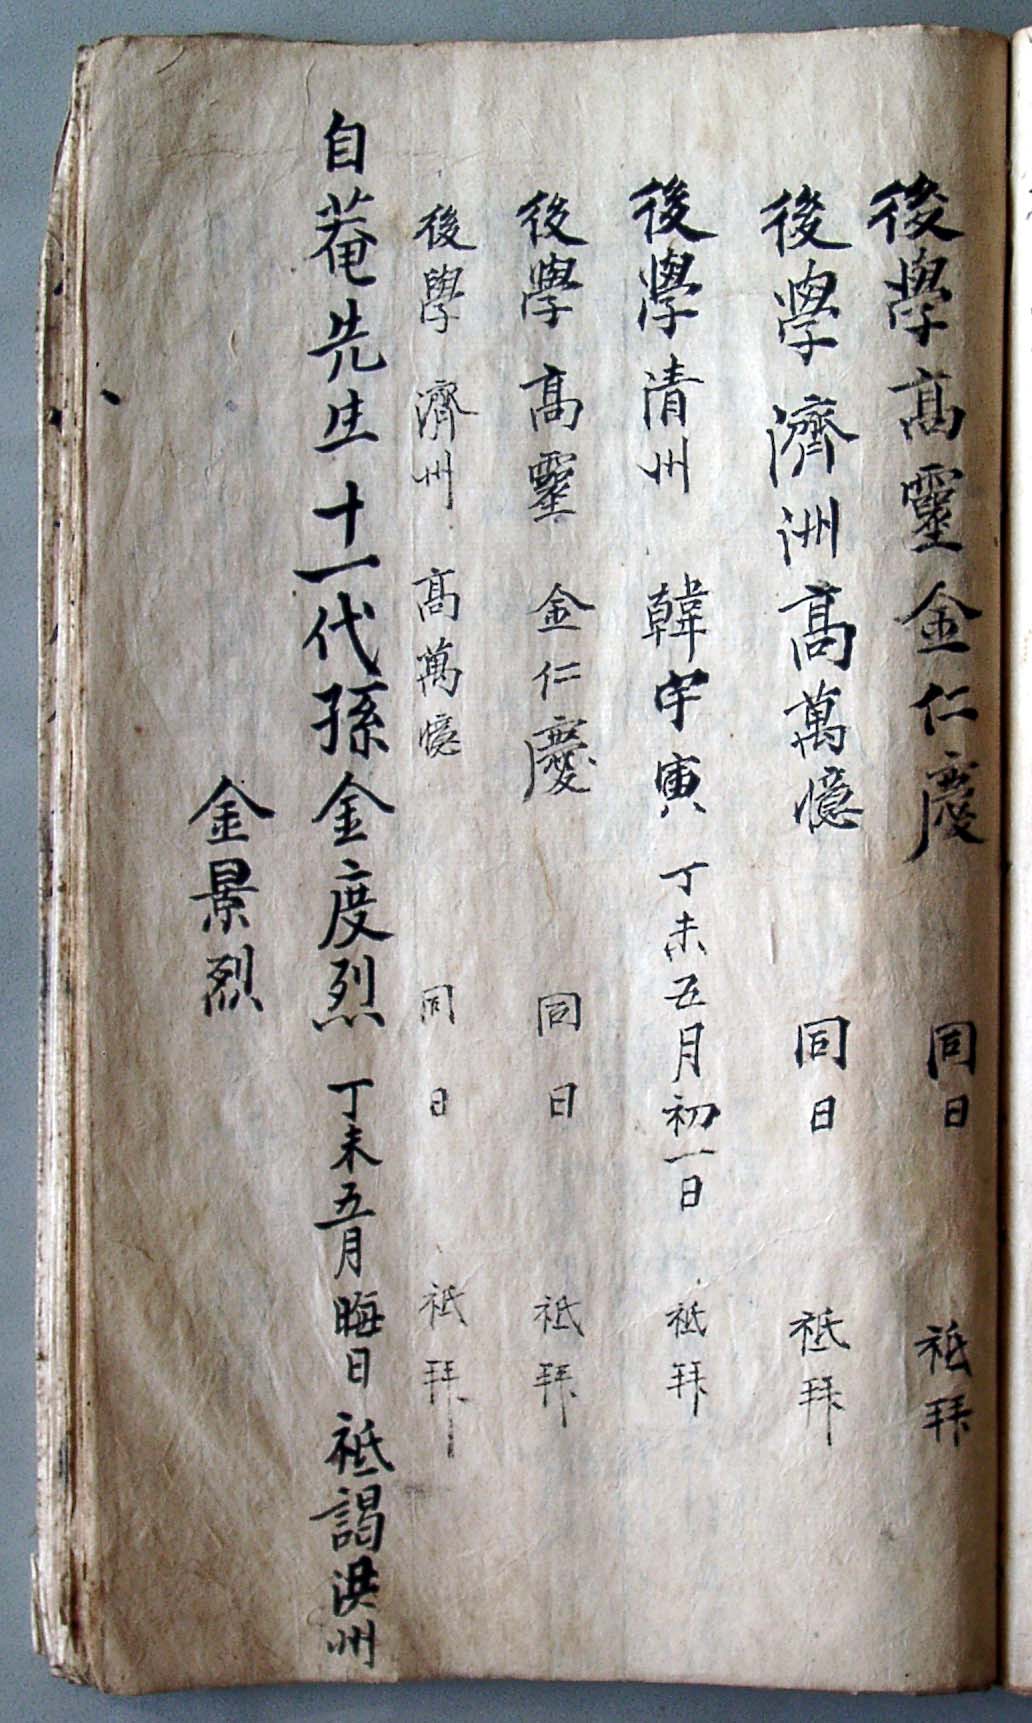 後學高靈金仁慶 同日 祗拜
後學濟洲高萬憶 同日 祗拜
後學清州 韓宇寅 丁未五月初一日 祗拜
後學高靈 金仁慶 同日 祗拜
後學 濟州 高萬憶 同日 祗拜
自菴先生十一代孫金度烈 丁未五月晦日祗謁洪州
金景烈